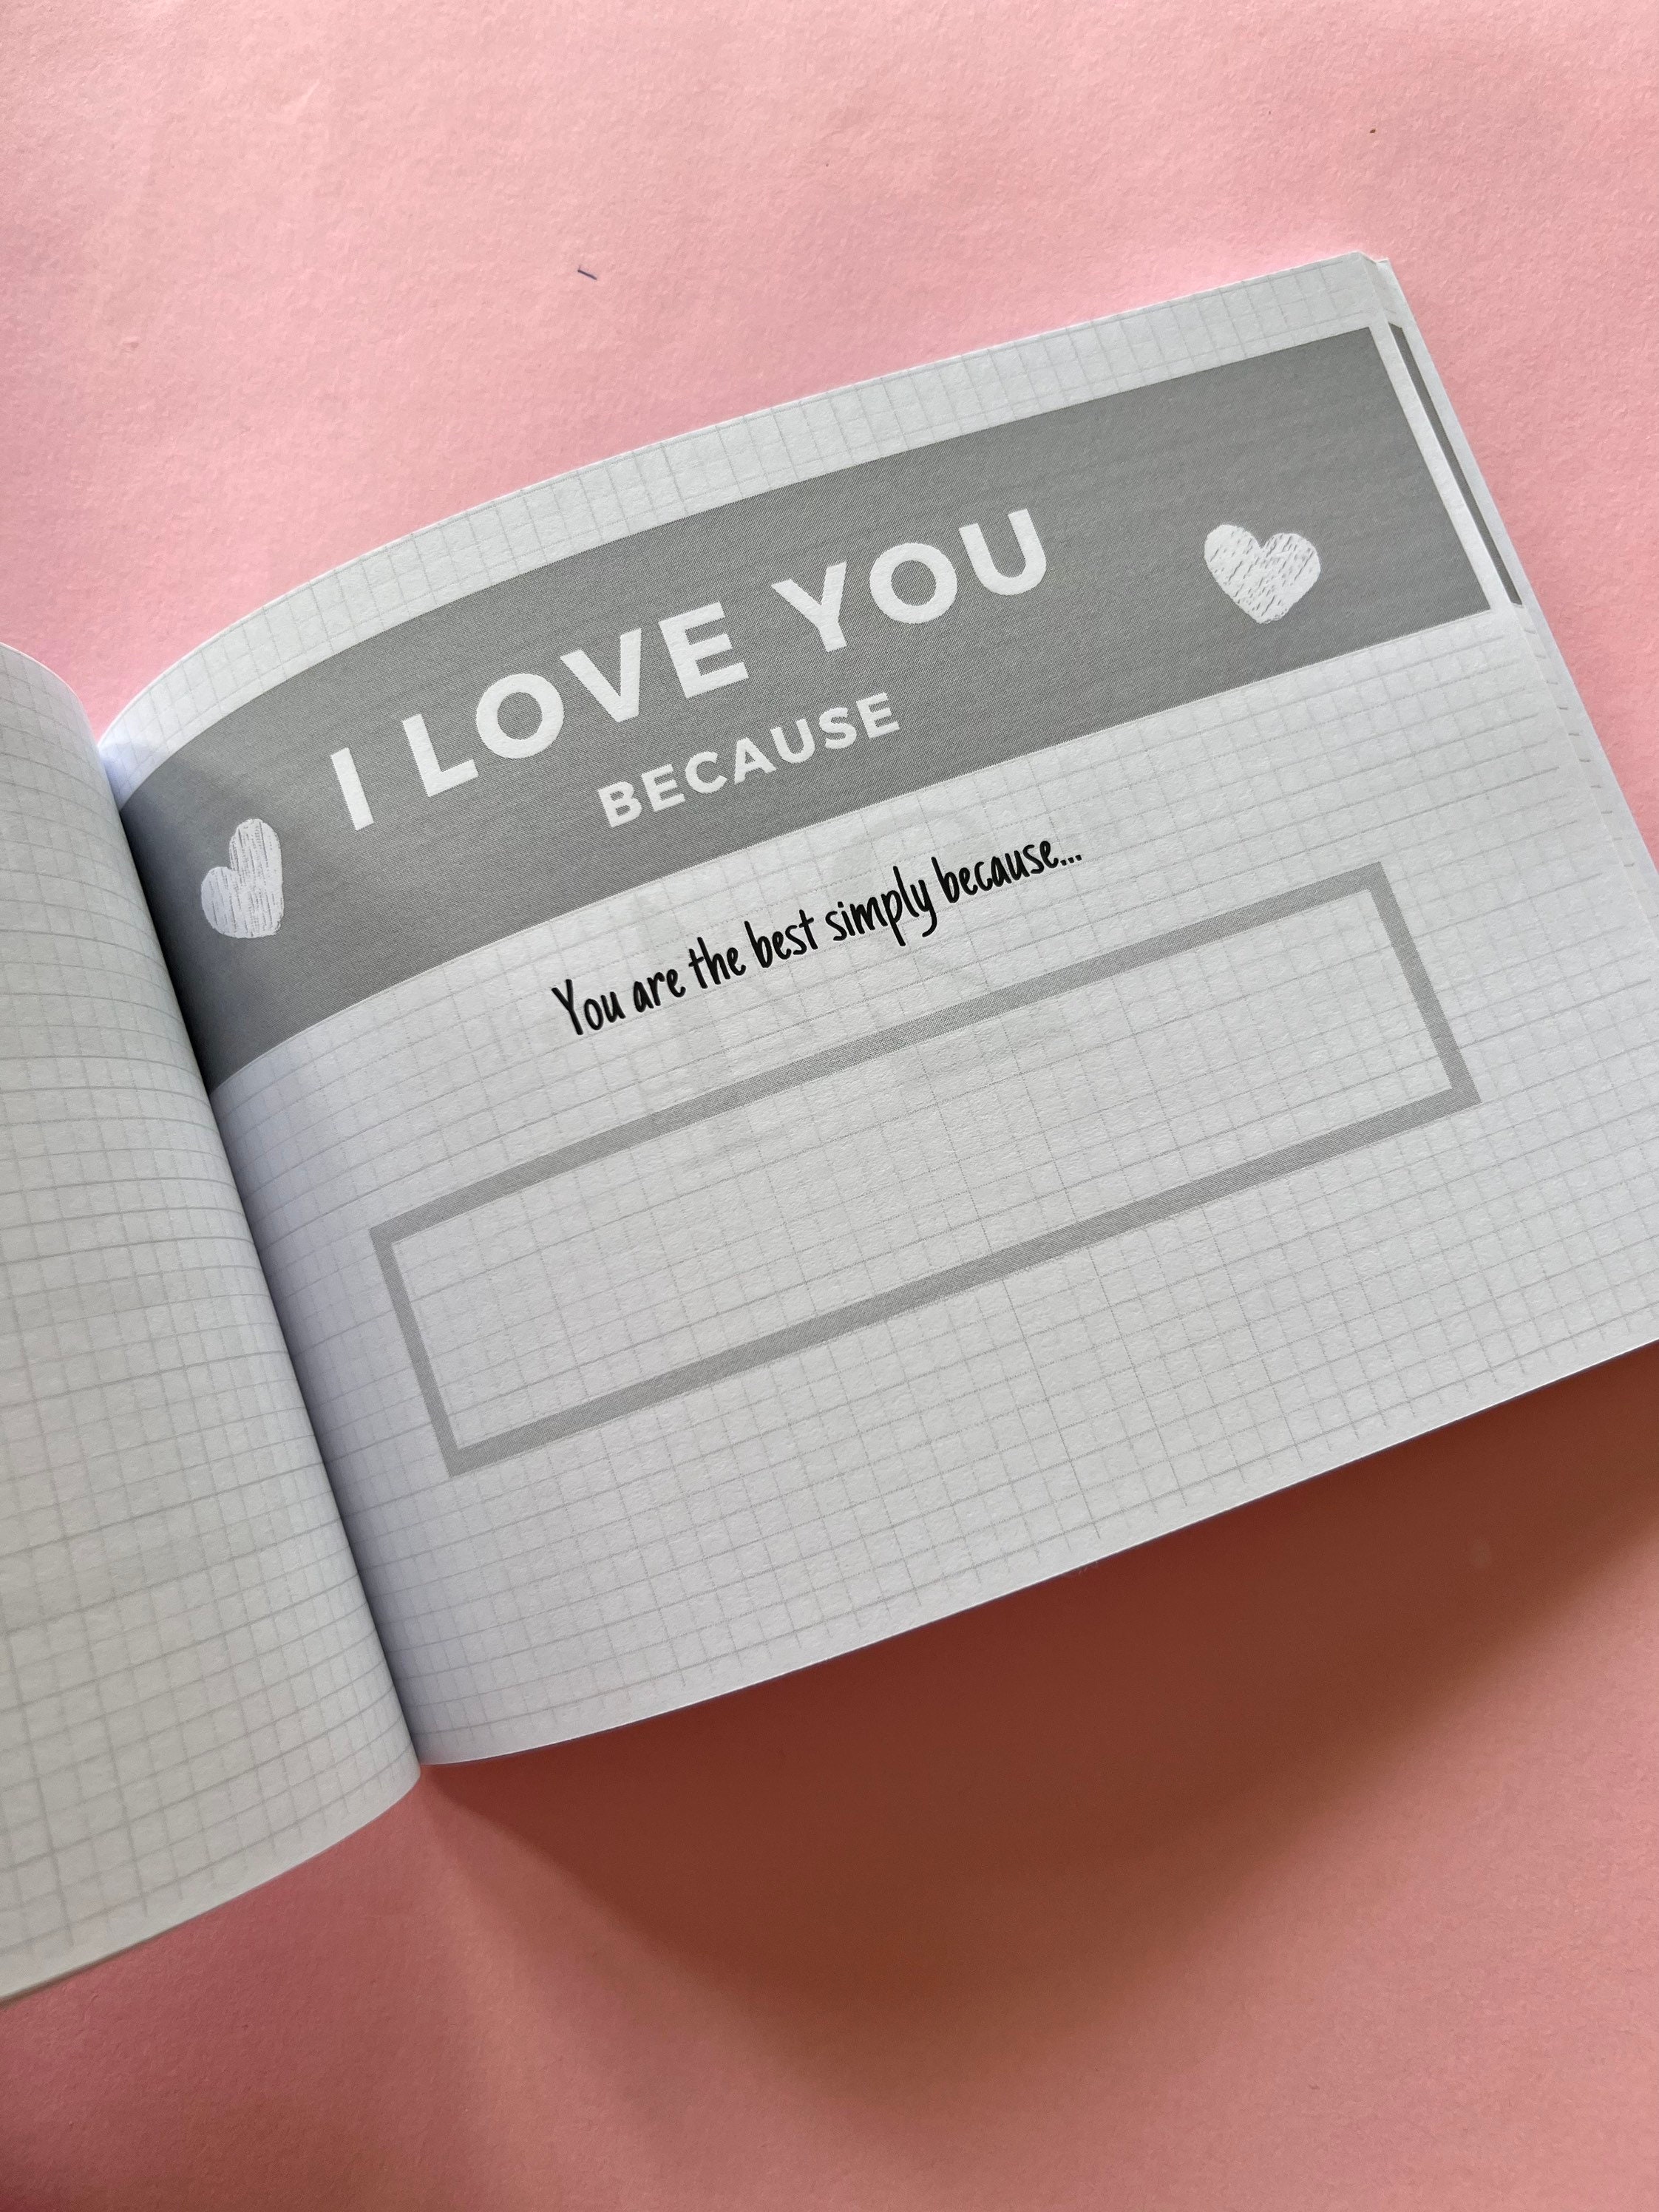 I LOVE YOU
BECAUSE
You are the best simply because...